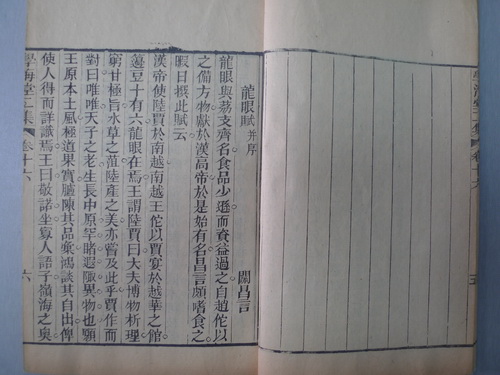 五
龍眼賦 并序
關昌言
龍眼與荔支齊名食品少遜而資益過之自趙佗以
之備方物獻於漢高帝於是始有名昌言頗嗜食之
暇日撰此賦云
漢帝使陸賈於南越南越王佗以賈宴於越華之館
籩豆十有六龍眼在焉王謂陸賈曰大夫博物析理
窮甘極旨水草之菹陸產之美亦嘗及此乎賈作而
對曰唯唯天子之老生長中原罕睹遐陬異物也願
王原本土風極道果實臚陳其品彙鴻談其自出俾
使人得而詳識焉王曰敬諾坐寡人語子嶺海之奥
學海堂二集 卷十六 六